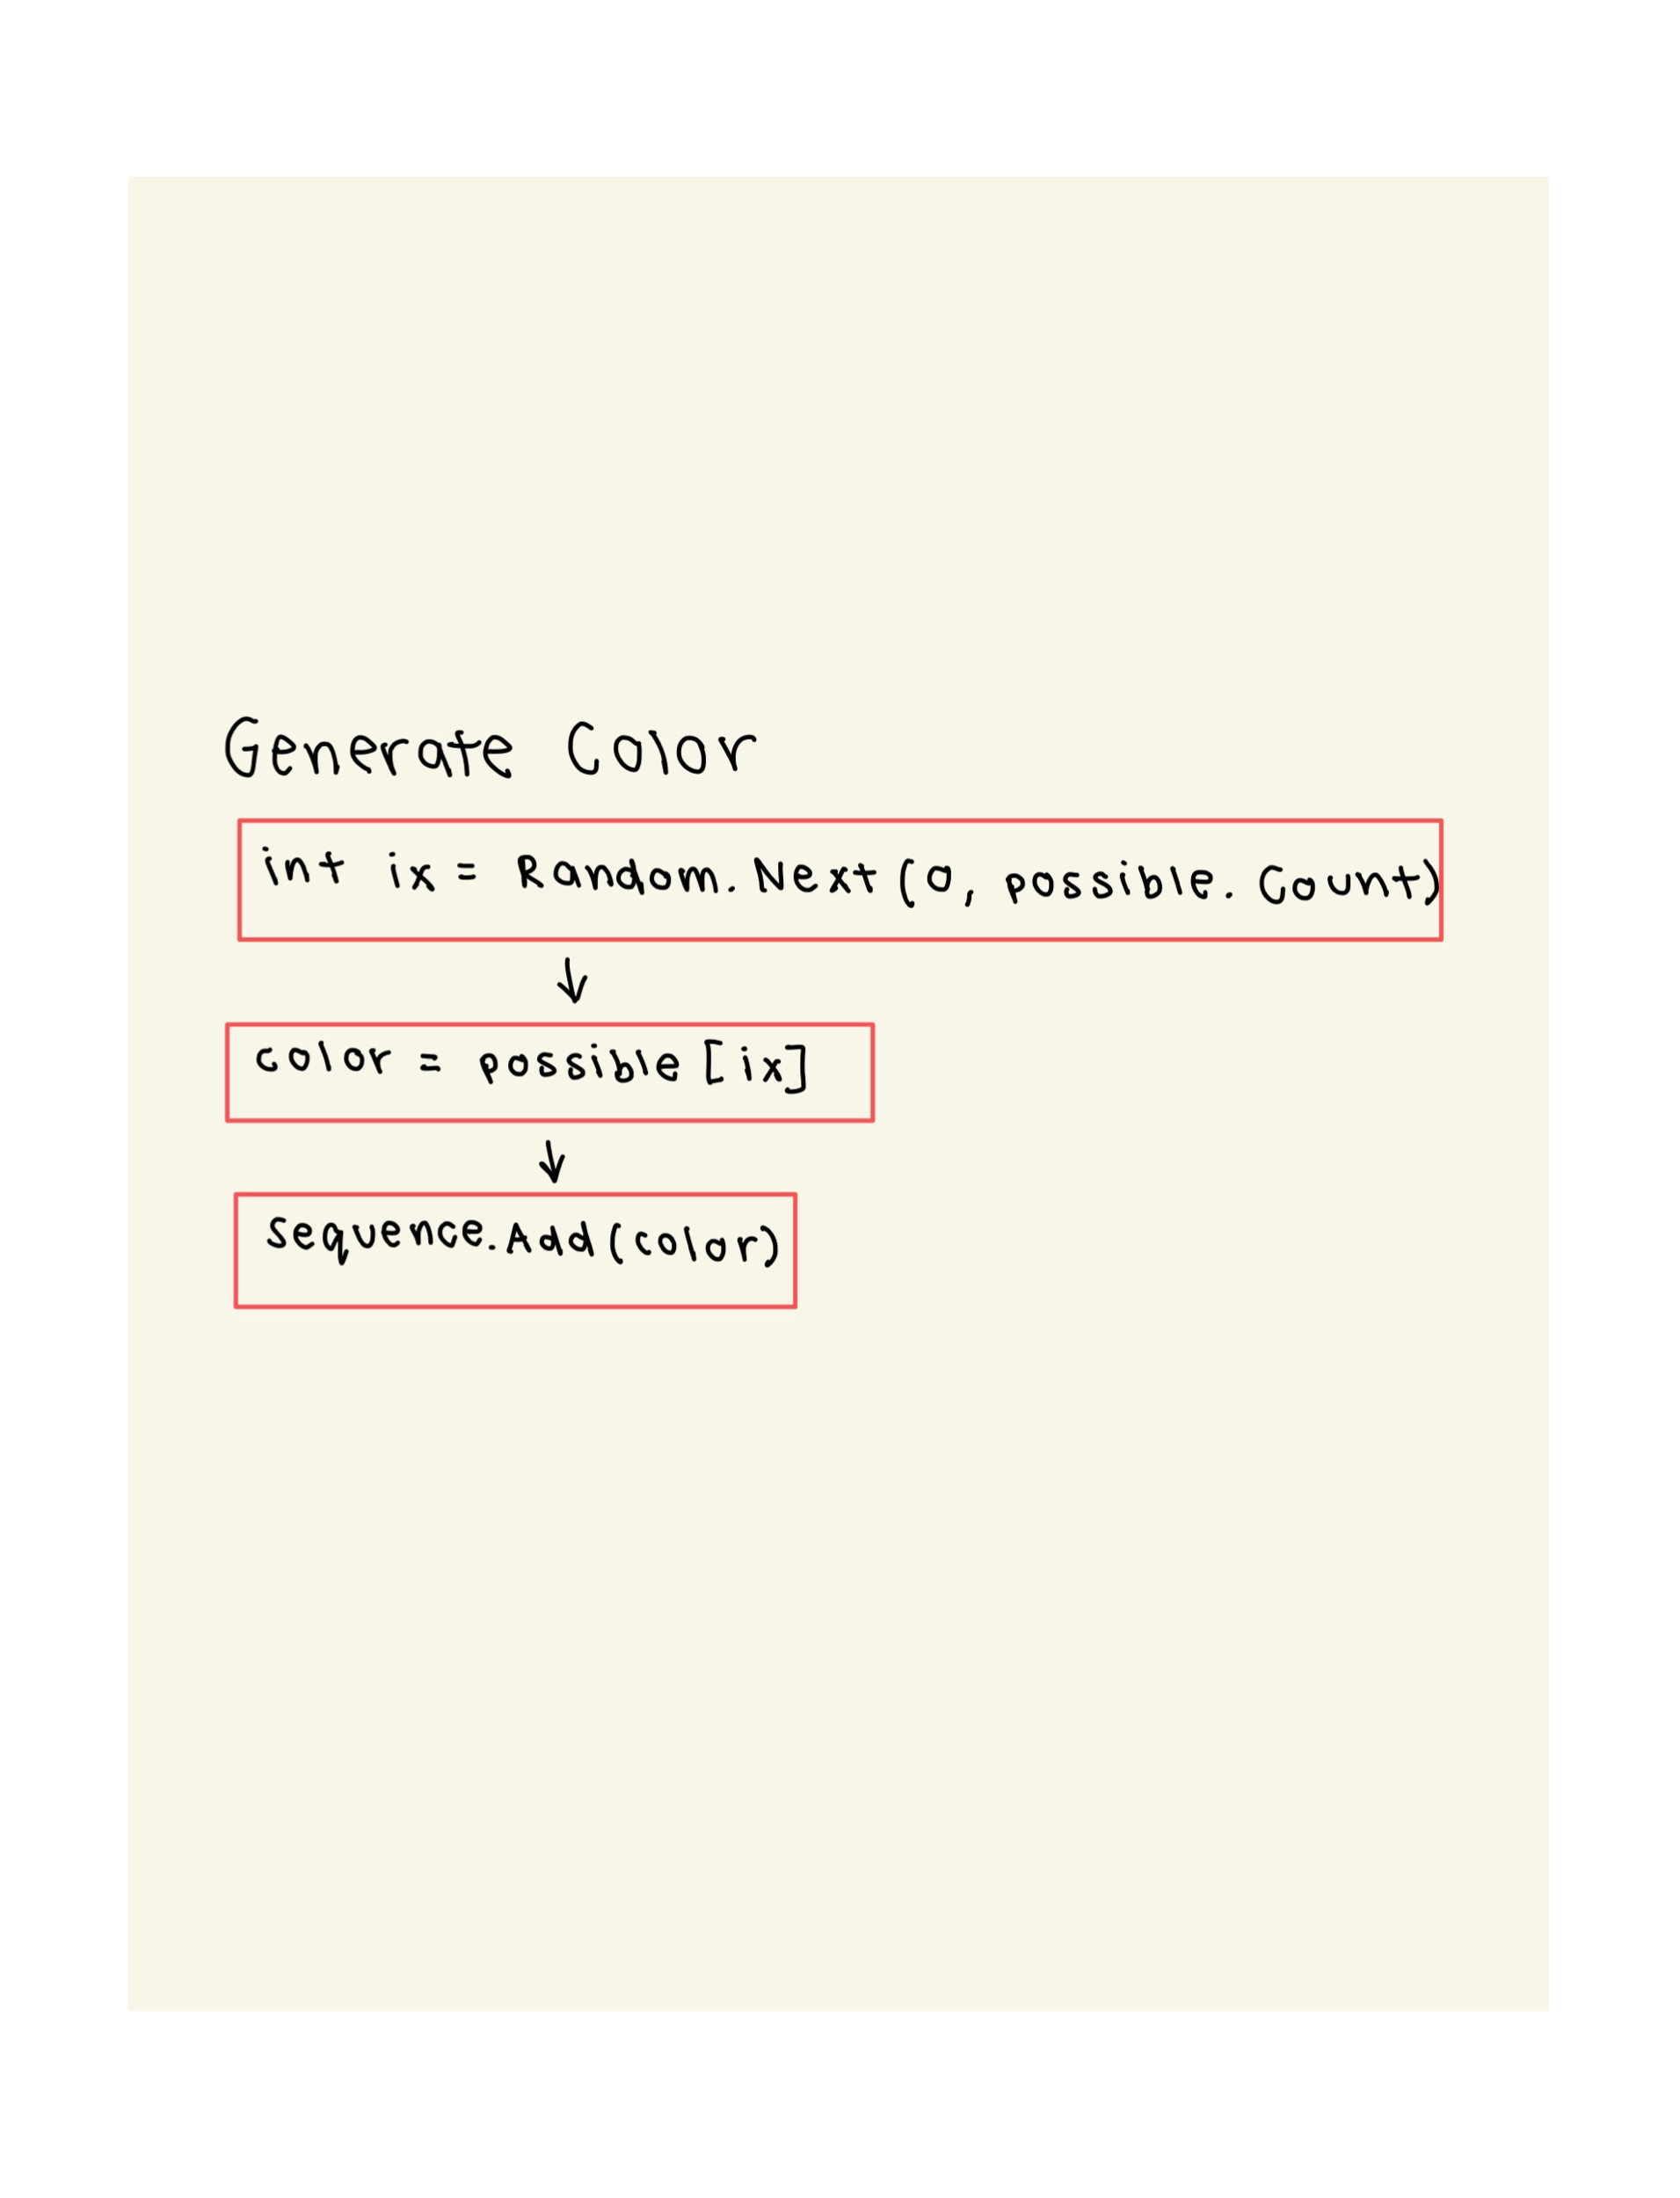 Generate Color
int ix = Random.Next(0, possible.Count)
color = possible[ix]
sequence.Add(color)